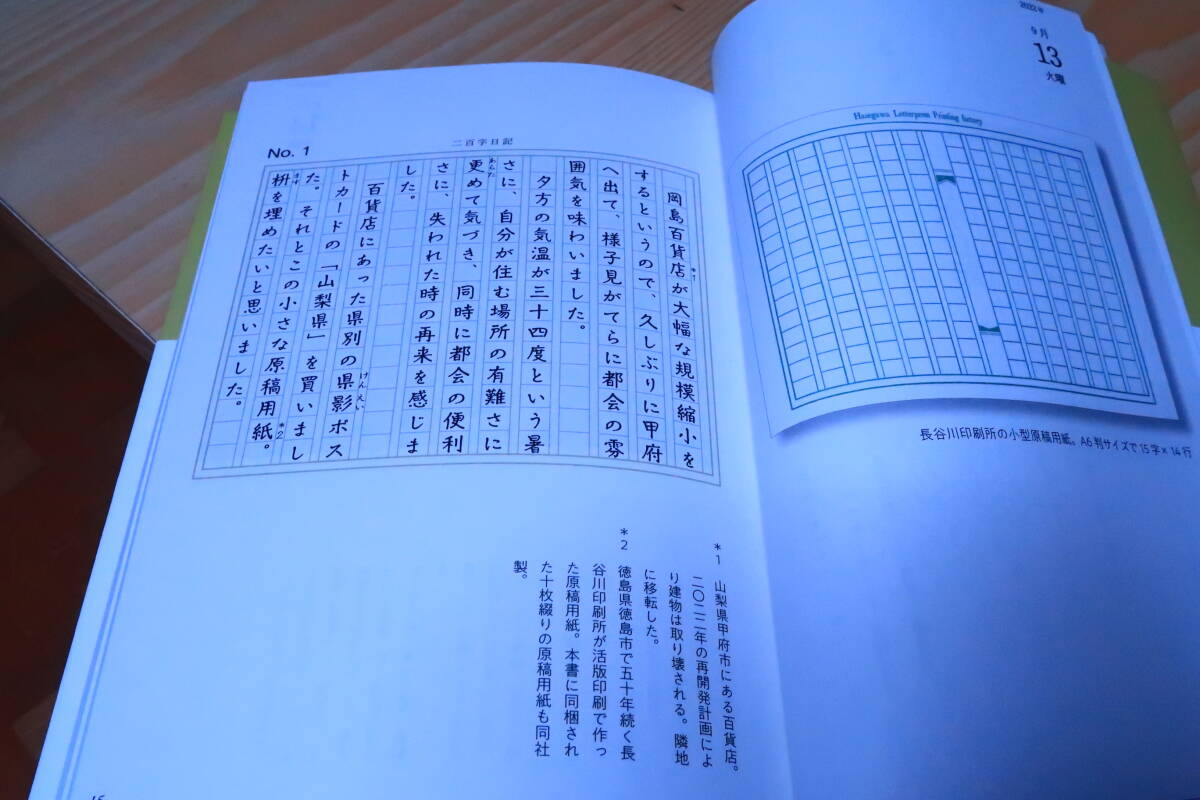 2022年
9月
13
火曜
Hasegawa Letterpress Printing factory
長谷川印刷所の小型原稿用紙。A6判サイズで15字×14行
二百字日記
No. 1
岡島百貨店*1が大幅な規模縮小を
するというので、久しぶりに甲府
へ出て、様子見がてらに都会の雰
囲気を味わいました。
夕方の気温が三十四度という暑
さに、自分が住む場所の有難さに
更めて気づき、同時に都会の便利
あらた
さに、失われた時の再来を感じま
した。
百貨店にあった県別の県影ポス
けんえい
トカードの「山梨県」を買いまし
た。それとこの小さな原稿用紙*2。
枡を埋めたいと思いました。
ます
*1 山梨県甲府市にある百貨店。
二〇二二年の再開発計画によ
り建物は取り壊される。隣地
に移転した。
*2 徳島県徳島市で五十年続く長
谷川印刷所が活版印刷で作っ
た原稿用紙。本書に同梱され
た十枚綴りの原稿用紙も同社
製。